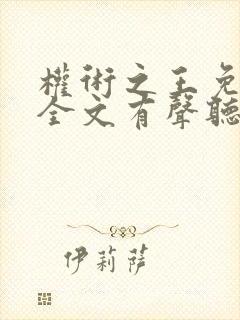 權術之王免
全文有聲聽
伊莉薩